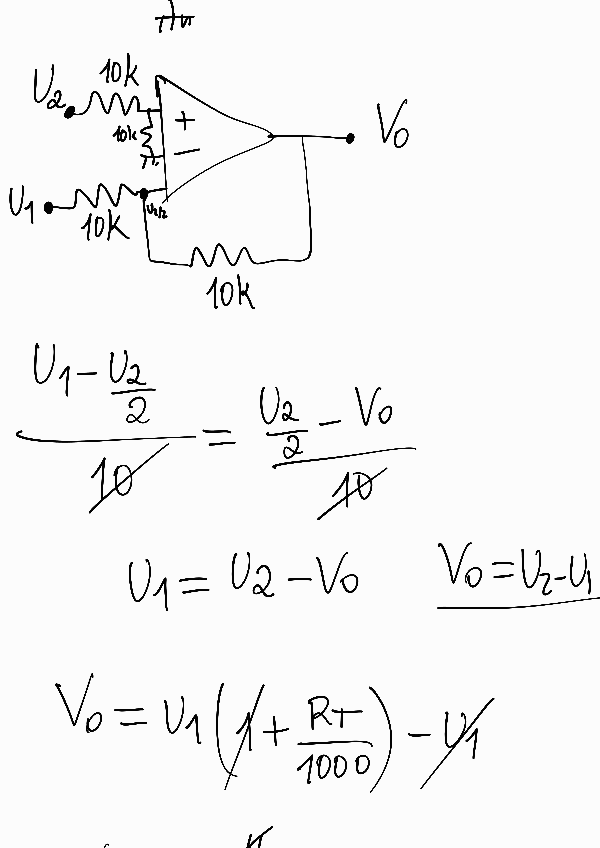 10k
U2
10k
+
−
V0
U1
10k
U2/2
10k
(U1 − U2/2)/10 = (U2/2 − V0)/10
U1 = U2 − V0
V0 = U2 − U1
V0 = U1(1 + RT/1000) − U1